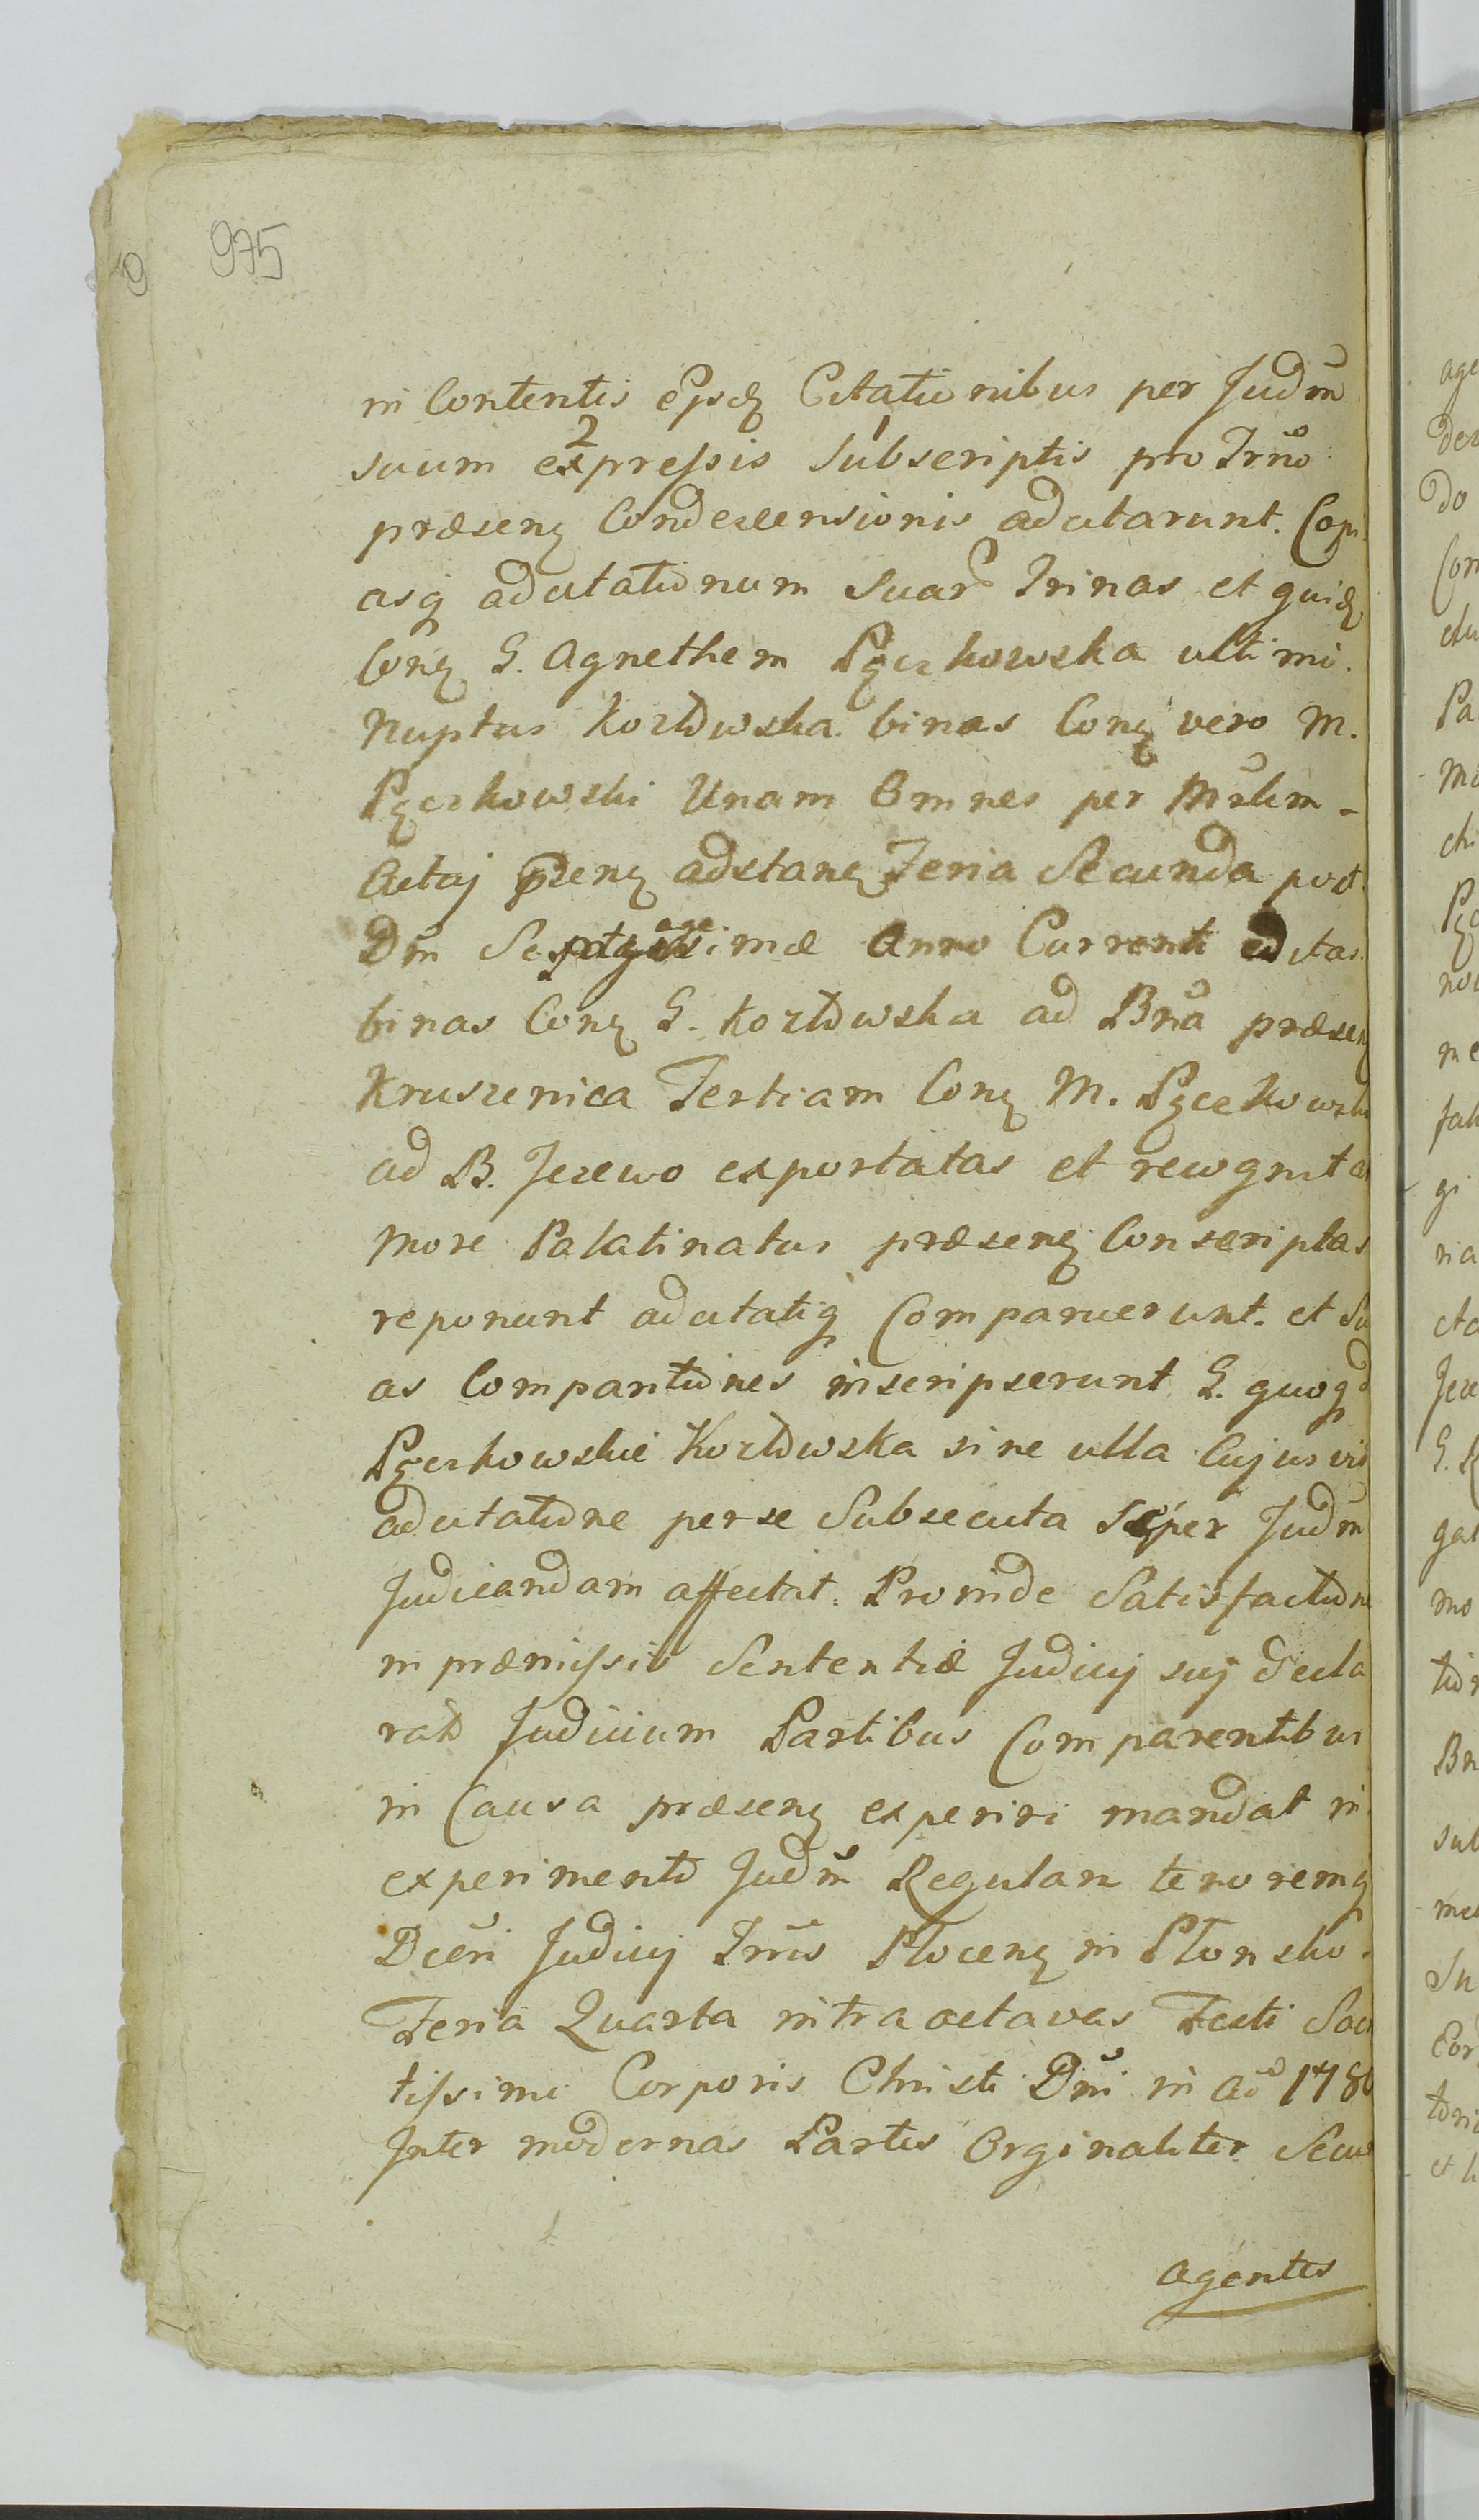 975
9
in Contentis ejusq Citationibus per Judm
suum expressis subscriptis pro Trno
præsenz Condescensionis adcitarunt. Copi
asq adcitationum Suar Trinas et quidz
Conz G. Agnethem Pęczkowska ultimi
Nuptus Kozłowska binas Conz vero M.
Pęczkowski Unam Omnes per Mrlem
Actuj præsenz adstanz Feria Secunda post
Dm Septuagesimæ Anno Currenti editas
binas Conz G. Kozłowska ad Bna præsenz
Kruszenica Tertiam Conz M. Pęczkowski
ad B. Jezewo exportatas et recognitas
more Palatinatus præsenz Conscriptas
reponunt adcitatiq Comparuerunt. et Su
as Comparitiones inscripserunt G. quoq
Pęczkowskie Kozłowska sine ulla Cujusvis
adcitatione per se Subsecuta se per Judm
Judicandam affectat. Proinde Satisfactione
in præmissis Sententiæ Judicij suj decla
rato Judicium Partibus Comparentibus
in Causa præsenz experiri mandat in
experimento Judm Regulam tenoremq
Dcni Judicij Trris Plocenz in Płonsko
Feria Quarta intra octavas Festi Sac
tissimi Corporis Christi Dni in Ao 1780
Inter modernas Partes Orginaliter Secus
agentes
age
Do
Com
Pa
Ma
ch
no
me
gi
na
Jeze
G. K
gat
mo
tion
Bn
sub
Su
Cor
et